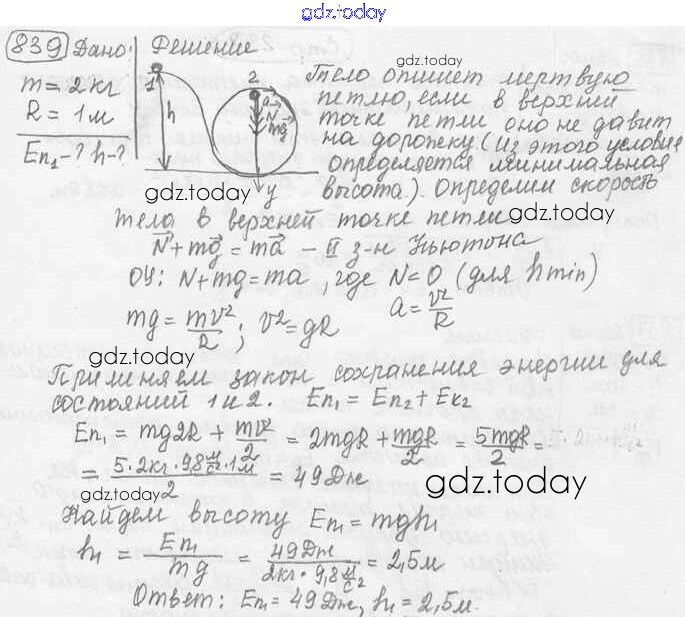 gdz.today
839 Дано: Решение
m = 2кг
R = 1м
Eп₁-? h-?
1 h 2 a⃗ N⃗ mg⃗ y
Тело опишет мертвую
петлю, если в верхней
точке петли оно не давит
на дорожку (из этого условие
определяется минимальная
высота). Определим скорость
gdz.today
gdz.today
тела в верхней точке петли
gdz.today
N⃗ + mg⃗ = ma⃗ – II з-н Ньютона
ОУ: N + mg = ma, где N = 0 (для hmin)
a = v²/R
mg = mv²/R; v² = gR
gdz.today
Применяем закон сохранения энергии для
состояний 1 и 2. Eп₁ = Eп₂ + Eк₂
Eп₁ = mg2R + mv²/2 = 2mgR + mgR/2 = 5mgR/2 =
= 5·2кг·9,8 м/с²·1м/2 = 49Дж
gdz.today
gdz.today
Найдем высоту Eп₁ = mgh₁
h₁ = Eп₁/mg = 49Дж/2кг·9,8 м/с² = 2,5м
Ответ: Eп₁ = 49Дж, h₁ = 2,5м.